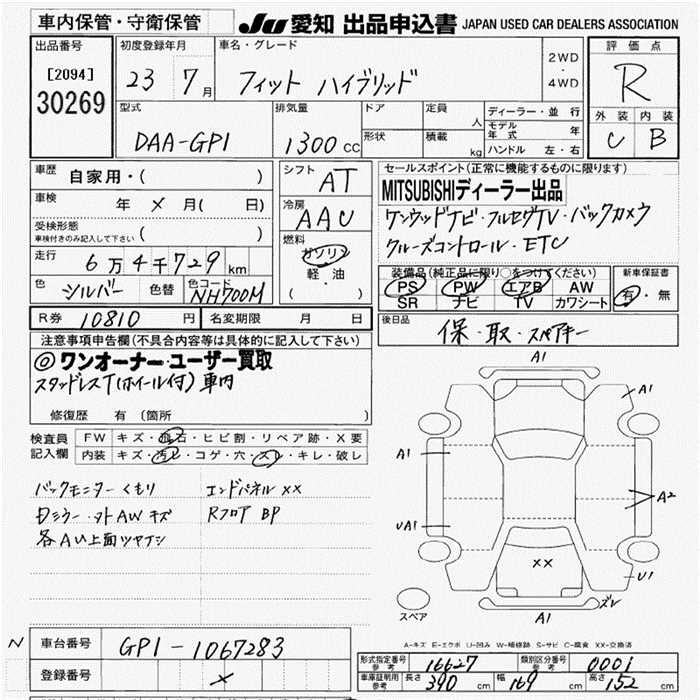 車内保管・守衛保管
JU 愛知 出品申込書 JAPAN USED CAR DEALERS ASSOCIATION
出品番号
[2094]
30269
初度登録年月
23 7月
車名・グレード
フィット ハイブリッド
2WD
・
4WD
評価点
R
外装 内装
C B
型式
DAA-GP1
排気量
1300 CC
ドア
形状
定員 人
積載 kg
ディーラー・並行
モデル年式 年
ハンドル 左・右
車歴
自家用・( )
車検
年 メ 月( 日)
受検形態
車検付きのみ記入して下さい ( )
走行
6万4千729km
色
シルバー
色替
色コード
NH700M
シフト
AT
冷房
AAC
燃料
ガソリン
軽・油
( )
セールスポイント(正常に機能するものに限ります)
MITSUBISHIディーラー出品
ワンウッドナビ・フルセグTV・バックカメラ
クルーズコントロール・ETC
装備品(純正品に限り○をつけてください)
PS PW エアB AW
SR ナビ TV カワシート
新車保証書
有・無
R券 10810 円
名変期限 月 日
後日品
保・取・スペアキー
注意事項申告欄(不具合内容等は具体的に記入して下さい)
◎ワンオーナー・ユーザー買取
スタッドレスT(ホイール付)車内
修復歴 有(箇所 )
検査員
記入欄
FW キズ・飛石・ヒビ割・リペア跡・X要
内装 キズ・汚レ・コゲ・穴・スレ・キレ・破レ
バックモニターくもり
エンドパネルXX
Rフロア BP
AW キズ
A1
A1
A1
A2
UA1
XX
U1
ズレ
A1
スペア
A-キズ E-エクボ U-凹み W-補修跡 S-サビ C-腐食 XX-交換済
N
車台番号
GP1-1067283
登録番号
メ
形式指定番号
参考
16627
類別区分番号
参考
0001
車庫証明用
参考
長さ 390 cm 幅 169 cm 高さ 152 cm